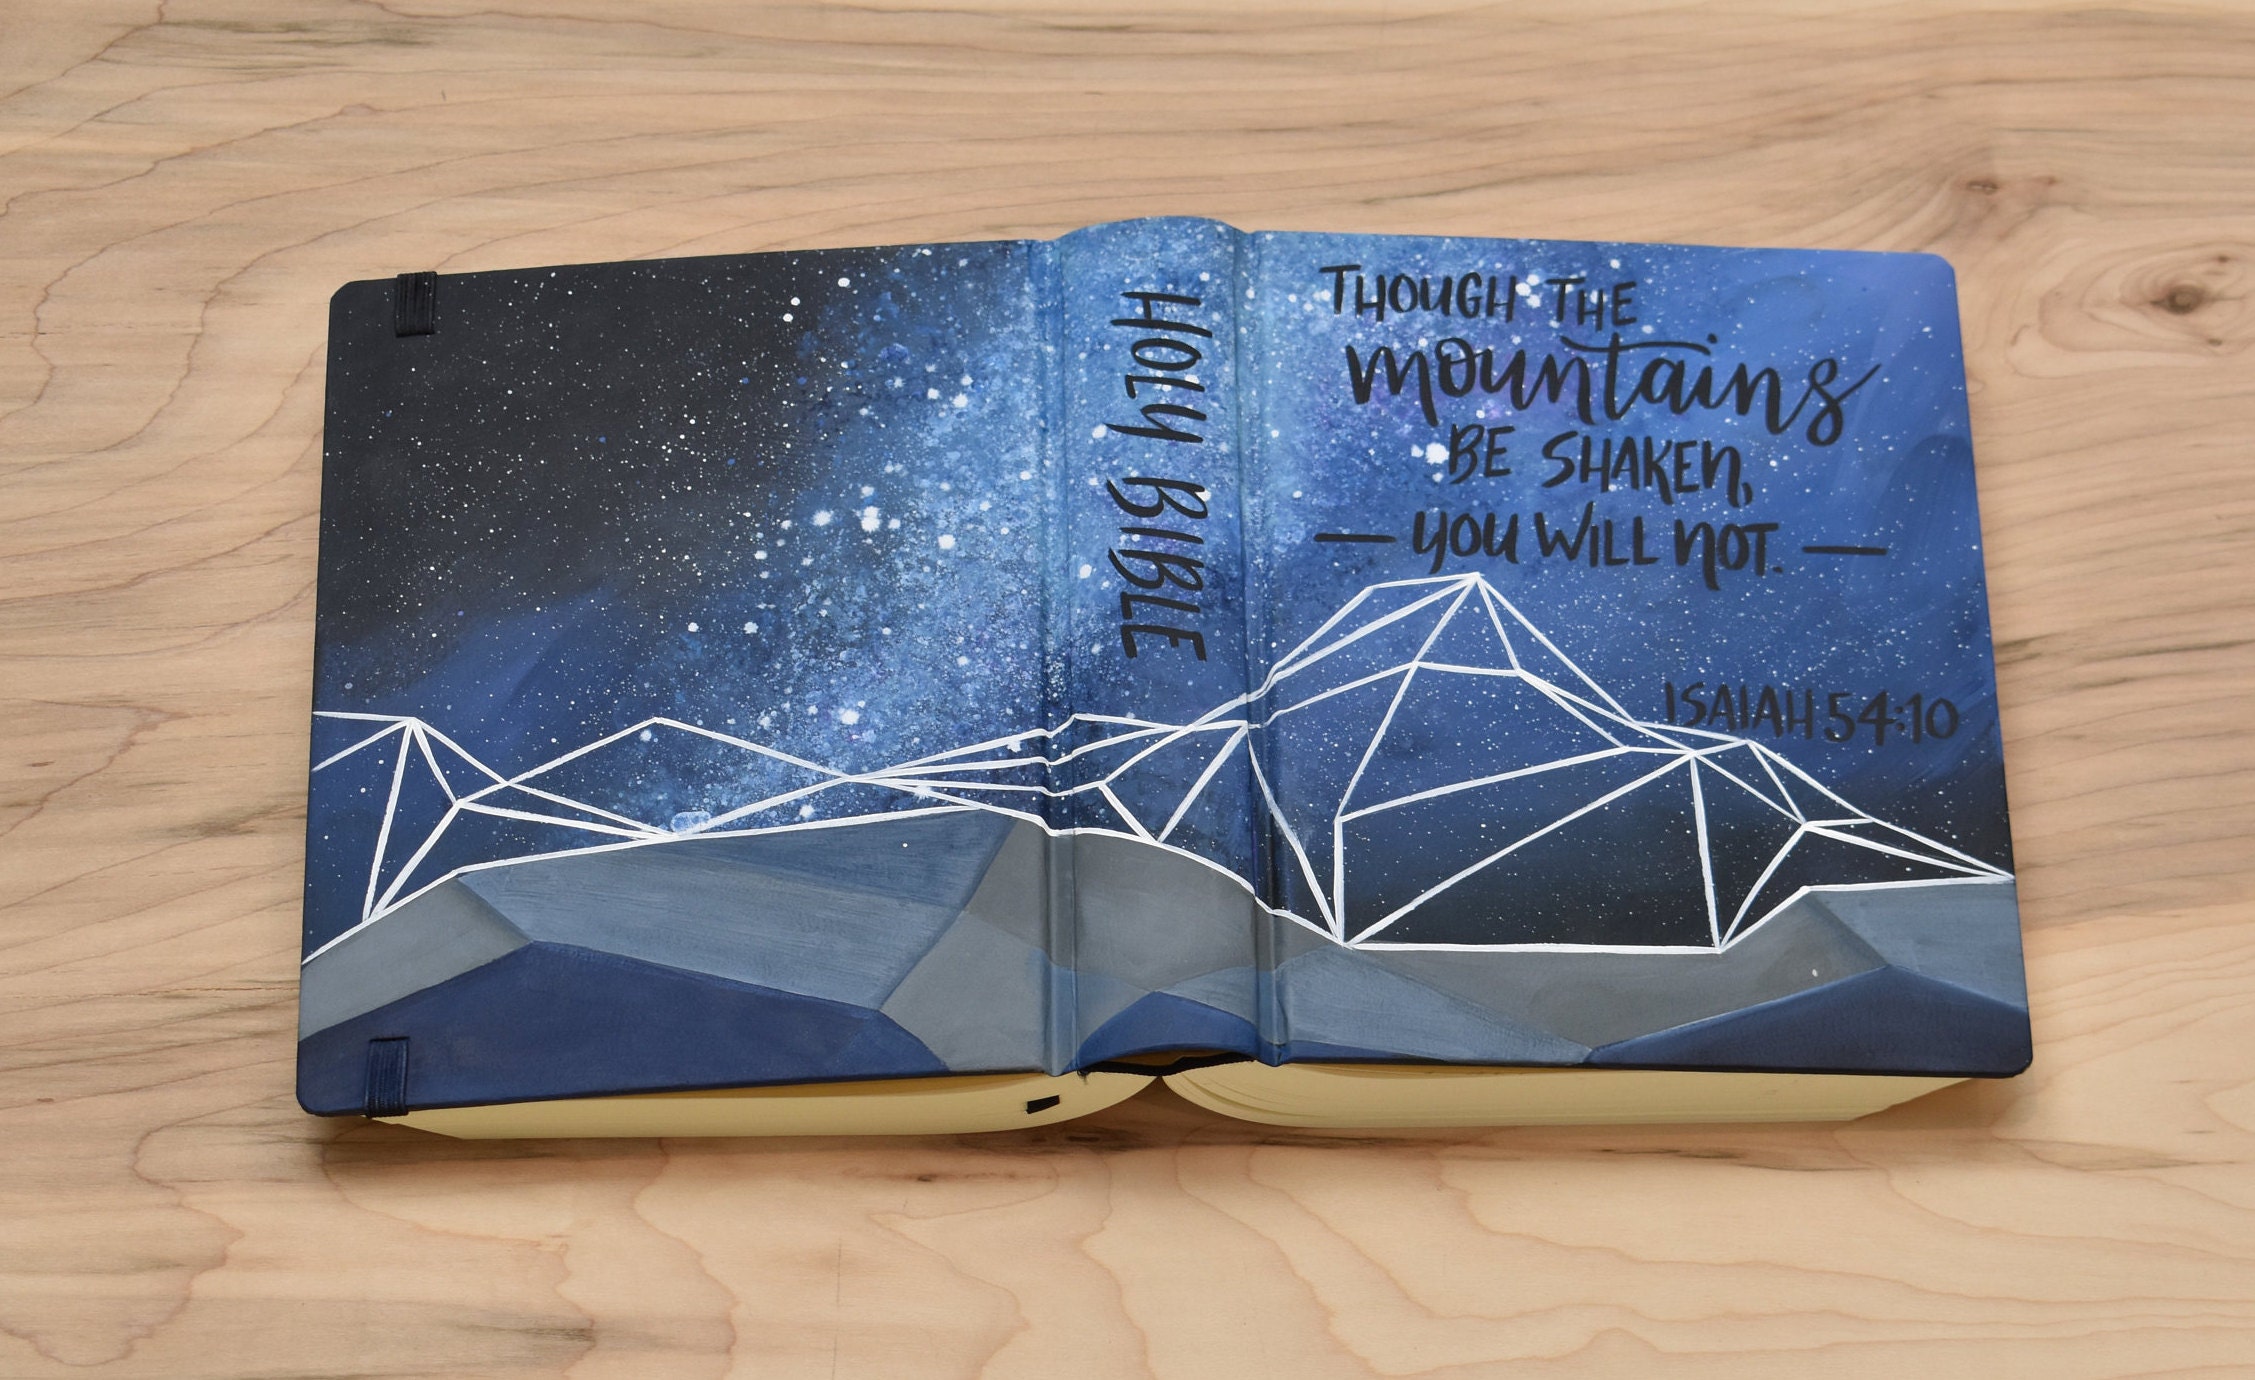 HOLY BIBLE
THOUGH THE
mountains
BE SHAKEN,
— YOU WILL NOT. —
ISAIAH 54:10